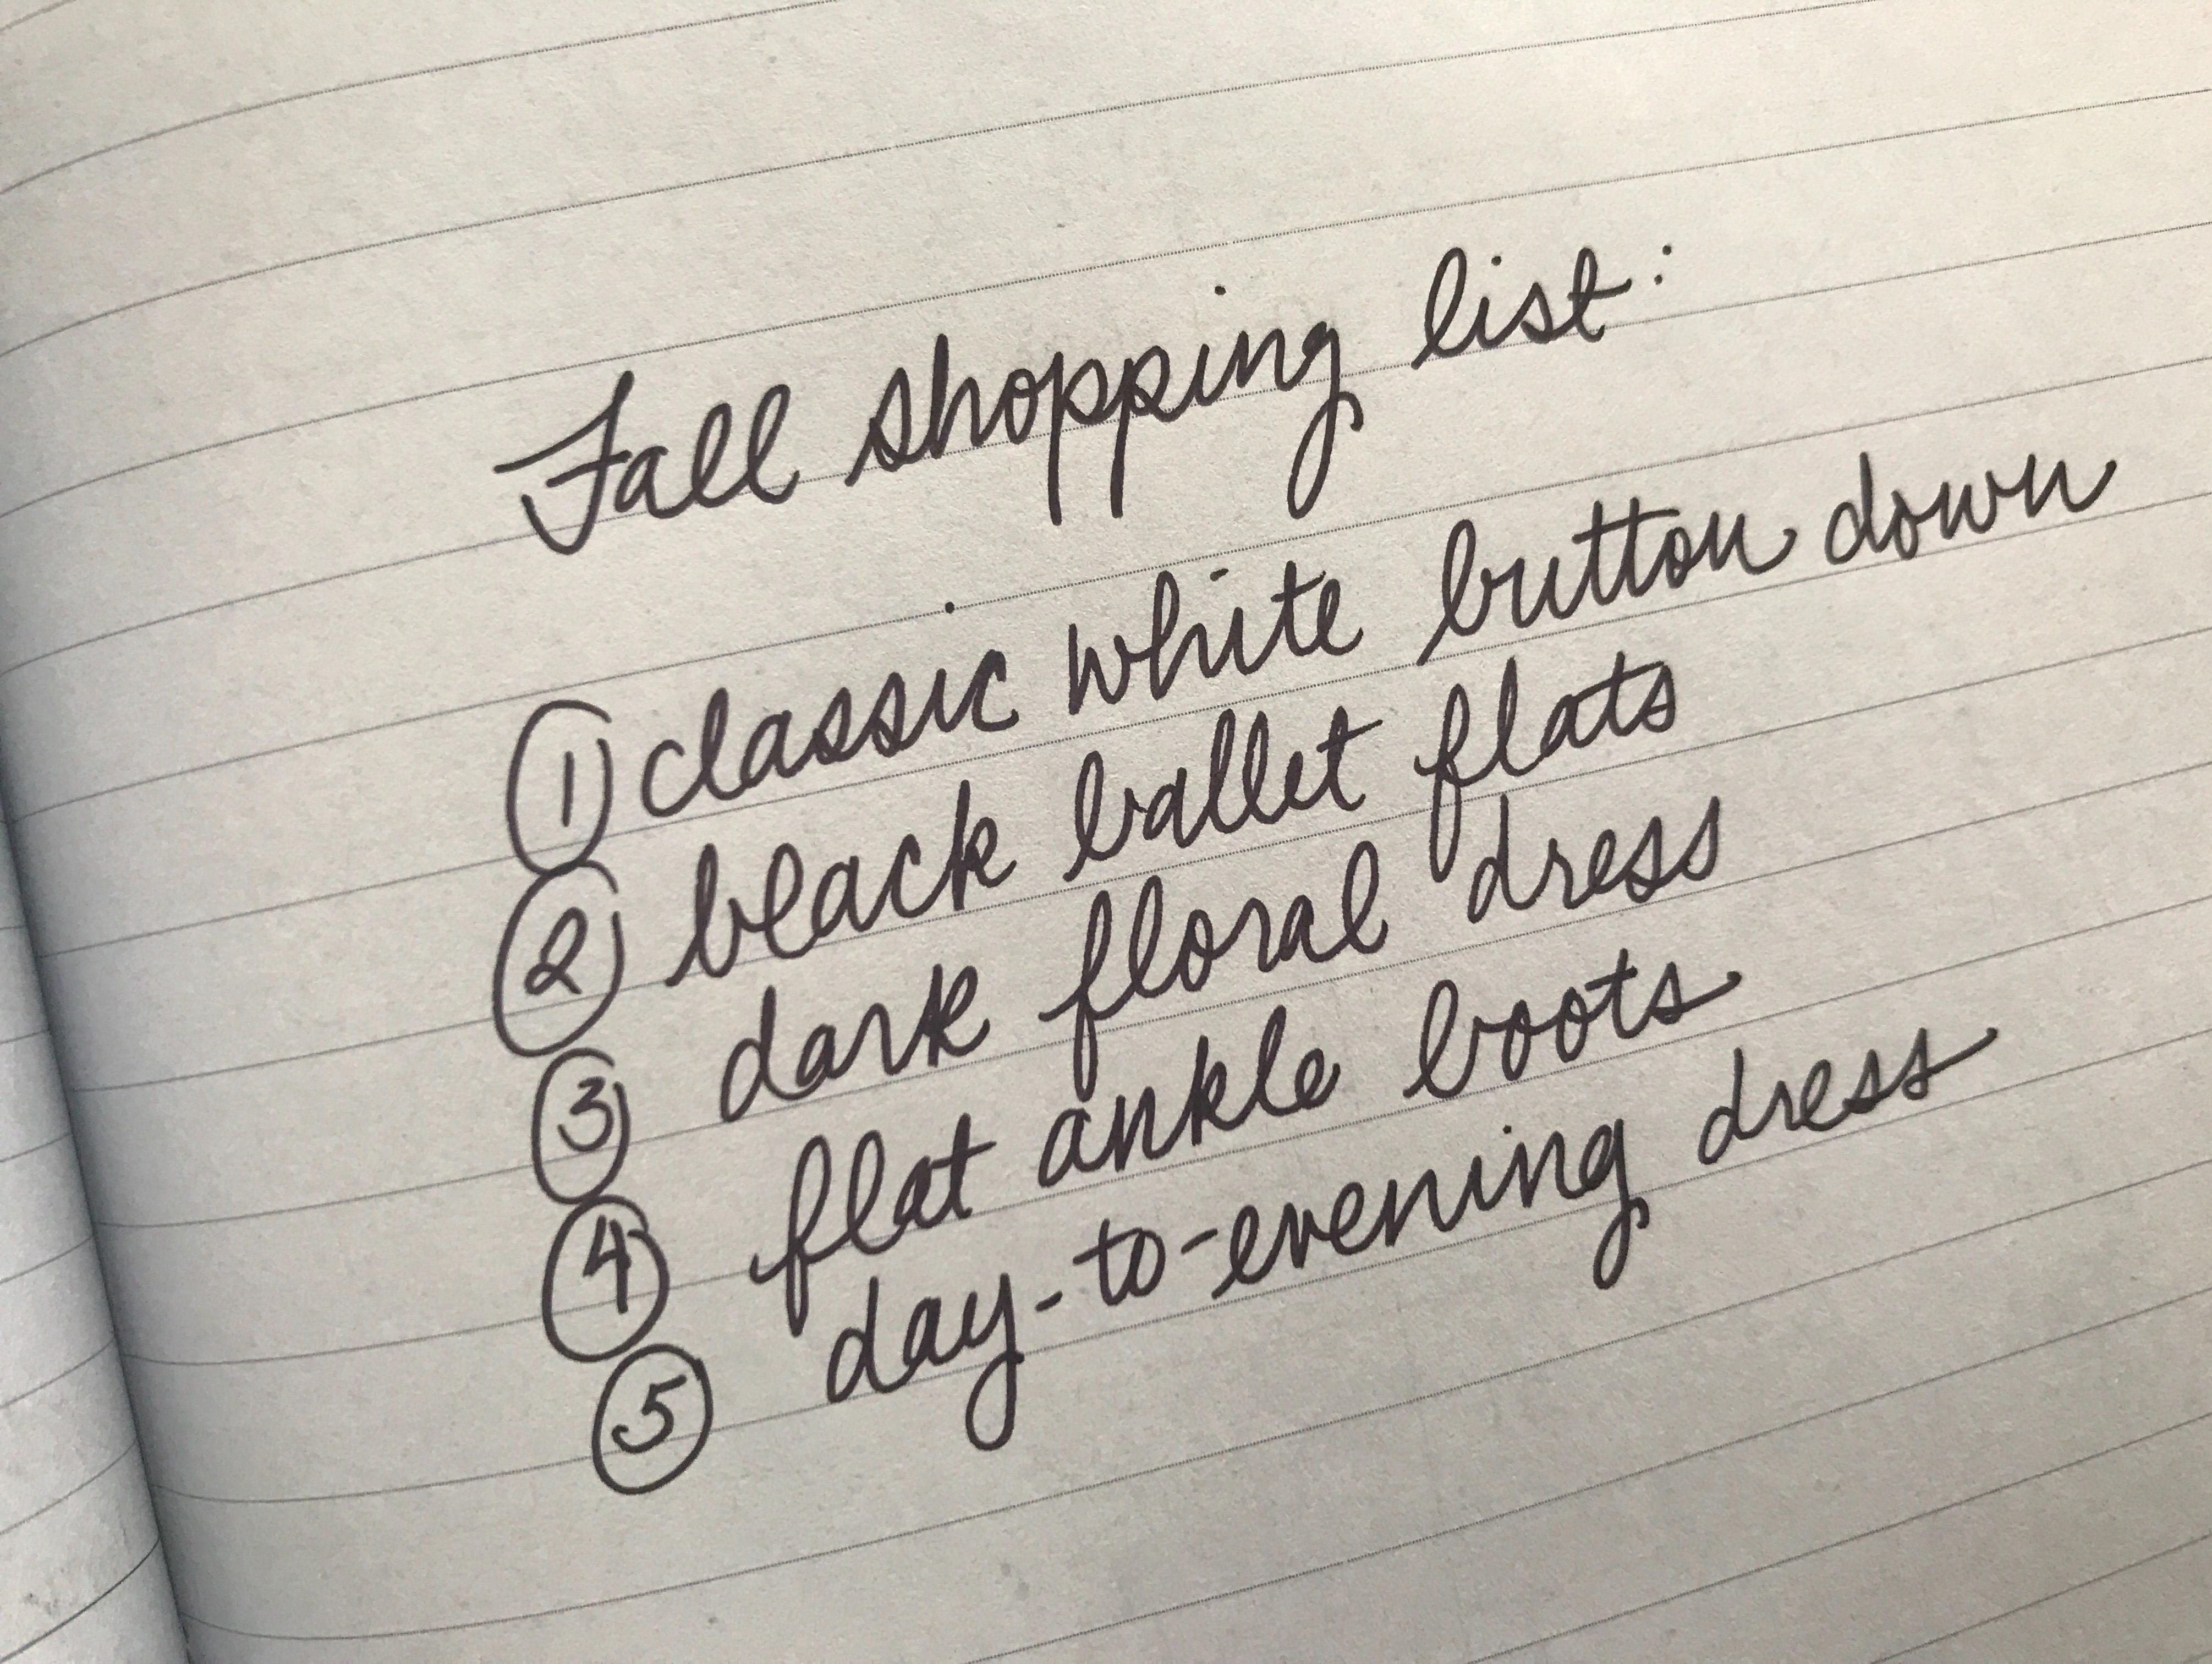 Fall shopping list:
① classic white button down
② black ballet flats
③ dark floral dress
④ flat ankle boots
⑤ day-to-evening dress